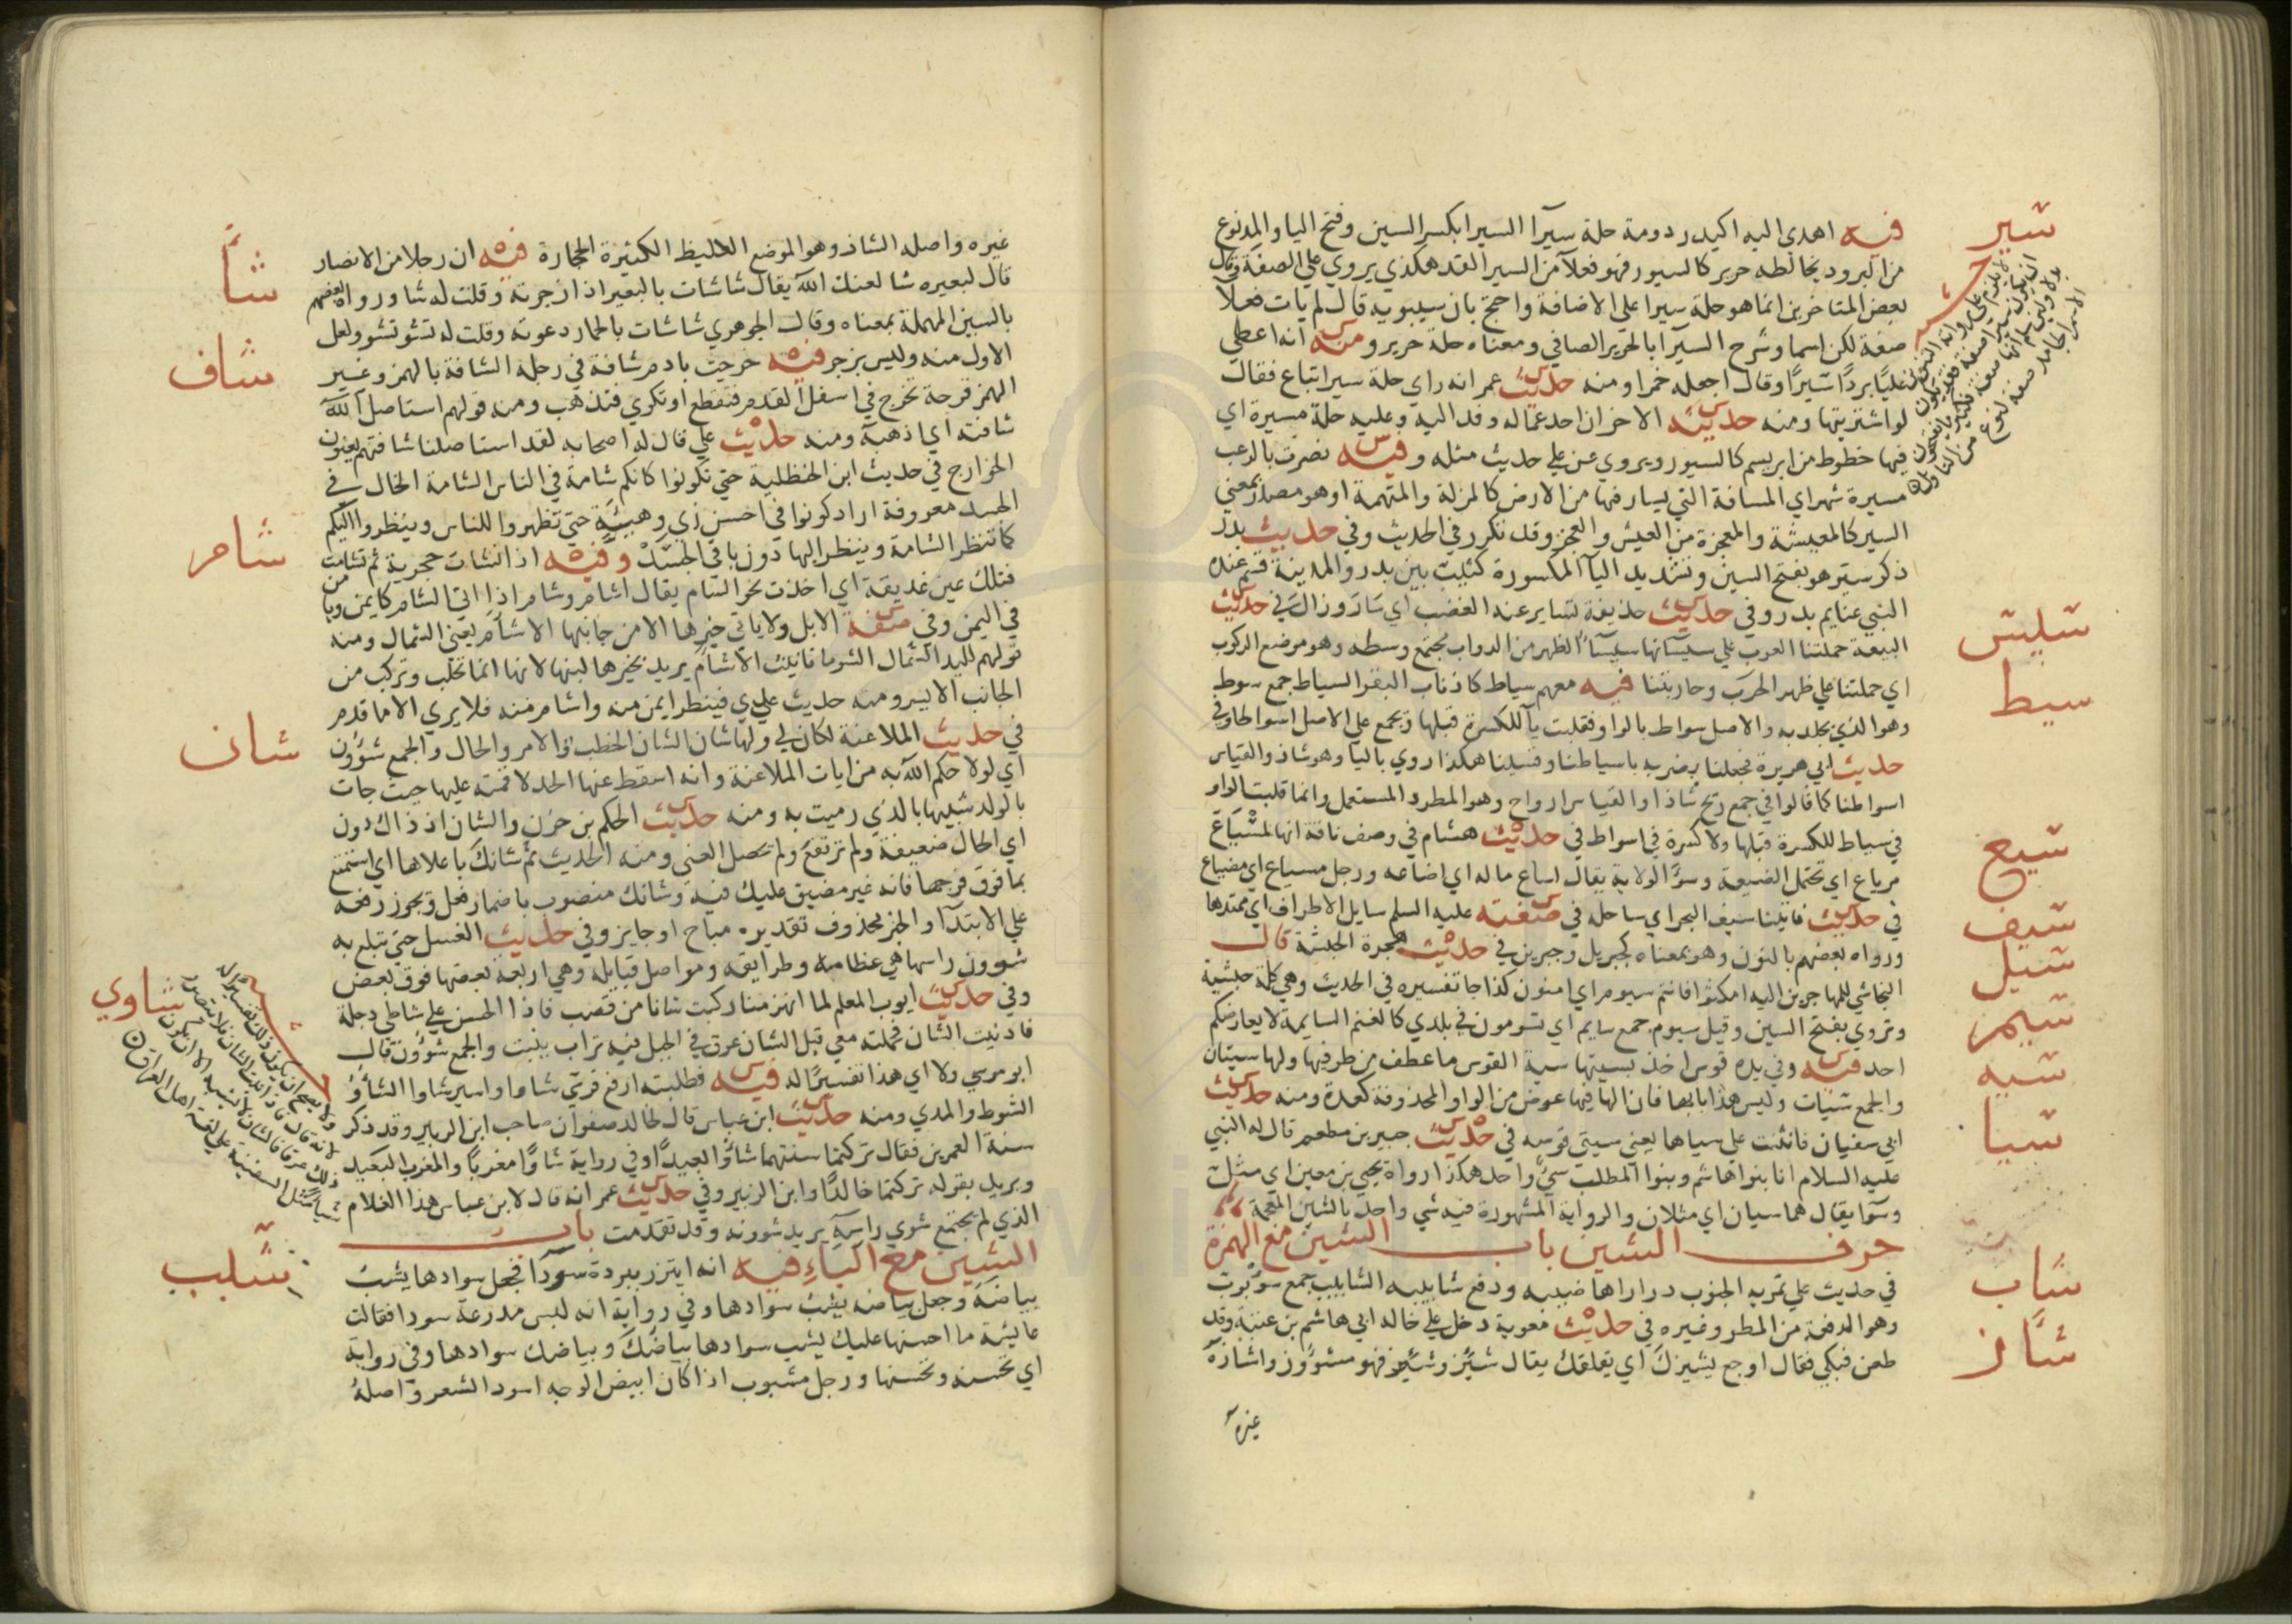 سير
فيه اهدى اليه اكيدر دومة حلة سيرآ السيرا بكسر السين وفتح اليا والمد نوع
من البرود يخالطه حرير كالسيور فهو فعلآ من السير القد هكذي يروي علي الصفة وقال
بعض المتاخرين انما هو حلة سيرا علي الاضافة واحتج بان سيبويه قال لم يات فعلا
صفة لكن اسما وشرح السيرآ بالحرير الصافي ومعناه حلة حرير ومنه انه اعطي
عليا بردا سيرا وقال اجعله خمرا ومنه حديث عمر انه راي حلة سيرا تباع فقال
لو اشتريتها ومنه حديثه الاخر ان احد عماله وفد اليه وعليه حلة مسيرة اي
فيها خطوط من ابريسم كالسيور ويروي عن علي حديث مثله وفيه نصرت بالرعب
مسيرة شهر اي المسافة التي يسار فيها من الارض كالمزلة والمتهمة او هو مصدر بمعني
السير كالمعيشة والمعجزة من العيش والعجز وقد تكرر في الحديث وفي حديث بدر
ذكر سير هو بفتح السين وتشديد اليآ المكسورة كثيب بين بدر والمدينة قسم عنده
النبي غنايم بدر وفي حديث حذيفة تساير عنه الغضب اي سار وزال في حديث
سيس
البيعة حملتنا العرب علي سيسائها سيسآ الظهر من الدواب مجتمع وسطه وهو موضع الركوب
سيط
اي حملتنا علي ظهر الحرب وحاربتنا فيه معهم سياط كاذناب البقر السياط جمع سوط
وهو الذي يجلد به والاصل سواط بالواو فقلبت يآ للكسرة قبلها ويجمع علي الاصل اسواطا وفي
حديث ابي هريرة فجعلنا نضربه باسياطنا وقسينا هكذا روي باليا وهو شاذ والقياس
اسواطنا كما قالوا في جمع ريح شاذا والقياس ارواح وهو المطرد المستعمل وانما قلبت الواو
سيع
في سياط للكسرة قبلها ولا كسرة في اسواط في حديث هشام في وصف ناقة انها لمسياع
مرياع اي تحتمل الضيعة وسوء الولاية يقال اساع ماله اي اضاعه ورجل مسياع اي مضياع
سيف
في حديث فاتينا سيف البحر اي ساحله في صفته عليه السلم سايل الاطراف اي ممتدها
سيل
ورواه بعضهم بالنون وهو بمعناه كجبريل وجبرين في حديث هجرة الحبشة قال
النجاشي للمهاجرين اليه امكثوا فانتم سيوم اي امنون كذا جا تفسيره في الحديث وهي كلمة حبشية
سيم
وتروي بفتح السين وقيل سيوم جمع سايم اي تسومون في بلدي كالغنم السايمة لا يعارضكم
سيه
احد فيه وفي يده قوس اخذ بسيتها سية القوس ما عطف من طرفيها ولها سيتان
والجمع سيات وليس هذا بابها فان الها فيها عوض من الواو المحذوفة كعدة ومنه حديث
سيا
ابي سفيان فانثنت علي سياها يعني سيتي قوسه في حديث جبير بن مطعم قال له النبي
عليه السلام انا بنوا هاشم وبنوا المطلب سي واحد هكذا رواه يحيي بن معين اي مثل
وسوآ يقال هما سيان اي مثلان والرواية المشهورة فيه شي واحد بالشين المعجمة
حرف الشين باب الشين مع الهمزة
شاب
في حديث علي تمريه الجنوب درر اهاضيبه ودفع شابيبه الشابيب جمع شؤبوب
وهو الدفعة من المطر وغيره في حديث معوية دخل علي خاله ابي هاشم بن عتبة وقد
شاز
طعن فبكي فقال اوجع يشيزك اي يقلقك يقال شئز وشئز فهو مشؤوز واشازه
غيره
غيره واصله الشاز وهو الموضع الغليظ الكثيرة الحجارة فيه ان رجلا من الانصار
شأ
قال لبعيره شا لعنك الله يقال شاشات بالبعير اذا زجرته وقلت له شا ورواه بعضهم
بالسين المهملة بمعناه وقال الجوهري شاشات بالحمار دعوته وقلت له تشؤ تشؤ ولعل
شاف
الاول منه وليس بزجر فيه خرجت بادم شافة في رجله الشافة بالهمز وغير
الهمز قرحة تخرج في اسفل القدم فتقطع او تكوي فتذهب ومنه قولهم استاصل الله
شافته اي اذهبه ومنه حديث علي قال له اصحابه لقد استاصلنا شافتهم يعنون
الخوارج في حديث ابن الحنظلية حتي تكونوا كانكم شامة في الناس الشامة الخال في
شام
الجسد معروفة اراد كونوا في احسن زي وهيئة حتي تظهروا للناس وينظروا اليكم
كما تنظر الشامة وينظر اليها دون باقي الجسد وفيه اذا نشات حجرية ثم تشامت
فتلك عين غديقة اي اخذت نحو الشام يقال اشام وشام اذا اتي الشام كايمن ويامن
في اليمن وفي صفة الابل ولا ياتي خيرها الا من جانبها الاشام يعني الشمال ومنه
قولهم لليد الشمال الشوما تانيث الاشام يريد بخيرها لبنها لانها انما تحلب وتركب من
الجانب الايسر ومنه حديث عدي فينظر ايمن منه واشام منه فلا يري الا ما قدم
شان
في حديث الملاعنة لكان لي ولها شان الشان الخطب والامر والحال والجمع شؤون
اي لولا حكم الله به من ايات الملاعنة وانه اسقط عنها الحد لاقمته عليها حيث جات
بالولد شبيها بالذي رميت به ومنه حديث الحكم بن حزن والشان اذ ذاك دون
اي الحال ضعيفة ولم ترتفع ولم تحصل الغني ومنه الحديث ثم شانك باعلاها اي استمتع
بما فوق فرجها فانه غير مضيق عليك فيه وشانك منصوب باضمار فعل ويجوز رفعه
علي الابتدآ والخبر محذوف تقديره مباح او جايز وفي حديث الغسل حتي تبلغ به
شوون راسها هي عظامه وطرايقه ومواصل قبايله وهي اربعة بعضها فوق بعض
وفي حديث ايوب المعلم لما انهزمنا ركبت شانا من قصب فاذا الحسن علي شاطي دجلة
فادنيت الشان فحملته معي قيل الشان عرق في الجبل فيه تراب ينبت والجمع شؤون قال
ابو موسي ولا اري هذا تفسيرا له فيه فطلبته ارفع فرسي شاوا واسير شاوا الشاو
شاوي
الشوط والمدي ومنه حديث ابن عباس قال لخالد صفوان صاحب ابن الزبير وقد ذكر
سنة العمرين فقال تركتما سنتهما شاوا بعيدا وفي رواية شاوا مغربا والمغرب البعيد
ويريد بقوله تركتما خالدا وابن الزبير وفي حديث عمر انه قال لابن عباس هذا الغلام
الذي لم يجتمع شوي راسه يريد شوونه وقد تقدمت باب
الشين مع الباء فيه انه ايتزر ببردة سودآ فجعل سوادها يشب
شبب
بياضه وجعل بياضه يشب سوادها وفي رواية انه لبس مدرعة سودا فقالت
عايشة ما احسنها عليك يشب سوادها بياضك وبياضك سوادها وفي رواية
اي تحسنه ويحسنها ورجل مشبوب اذا كان ابيض الوجه اسود الشعر واصله